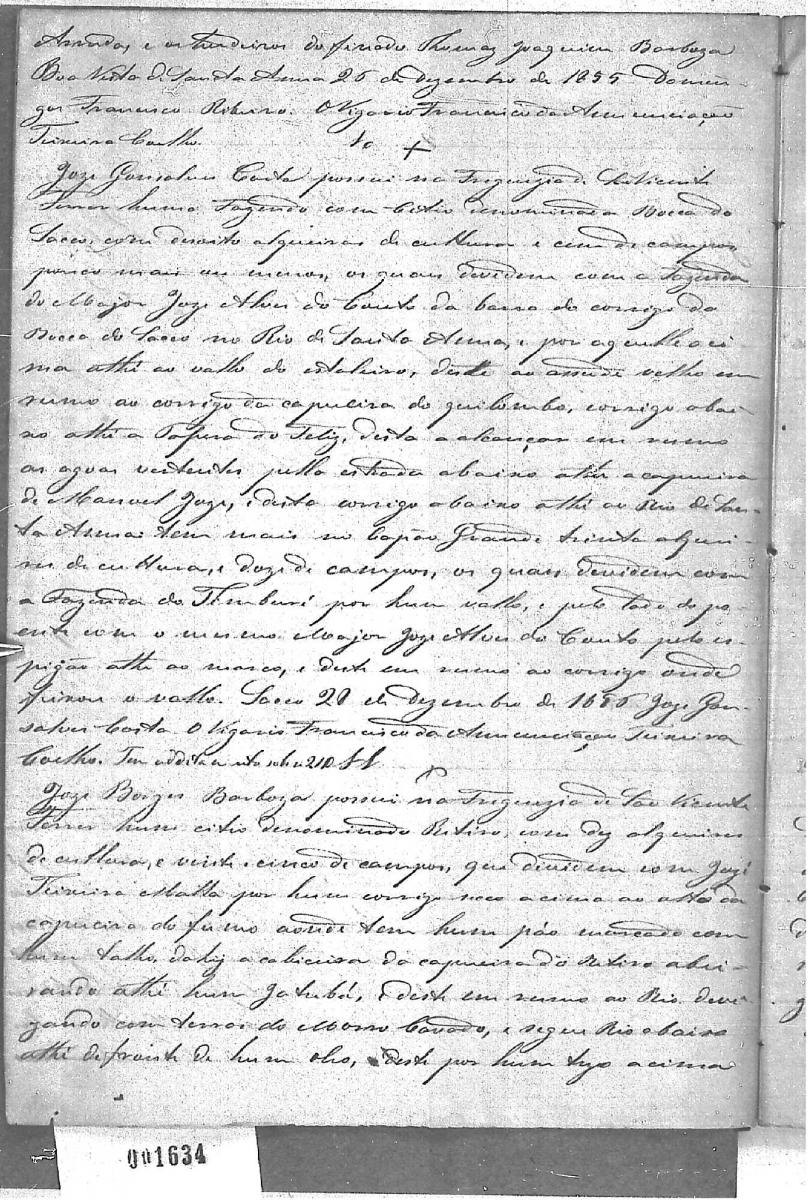 e os herdeiros do finado Thomaz Joaquim Barboza
Boa Vista de Sancta Anna 26 de Dezembro de 1855 Domin-
gos Francisco Ribeiro. O Vigario Francisco da Annunciação
Teixeira Coelho.
Joze Gonsalves Costa possui na Freguezia de S. Vicente
Ferrer huma Fazenda com Citio denominada Bocca do
Sacco, com desoito alqueires de cultura e cem de campos
pouco mais ou menos, os quais devidem com a Fazenda
do Major Joze Alves do Couto da barra do corrigo da
Bocca do Sacco no Rio de Santa Anna, e por aquelle aci-
ma athé ao vallo do estaleiro, deste ao assude velho em
rumo ao corrigo da capueira do quilombo, corrigo abai-
xo athé a Tapera do Feliz, desta a alcançar em rumo
as agoas vertentes pella estrada abaixo athe a capueira
de Manoel Joze, e desta corrigo abaixo athé ao Rio de San-
ta Anna: tem mais no Capão Grande trinta alquei-
res de cultura, e doze de campos, os quais devidem com
a Fazenda do Timburé por hum vallo, e pelo lado do po-
ente com o mesmo Major Joze Alves do Couto pelo es-
pigão athé ao marco, e deste em rumo ao corrigo onde
o vallo. Sacco 28 de Dezembro de 1855 Joze Gon-
salves Costa O Vigario Francisco da Annunciação Teixeira
Coelho. Tem additamento
Joze Borges Barboza possui na Freguezia de São Vicente
Ferrer hum citio denominado Retiro, com dez alqueires
de cultura, e vinte e cinco de campos, que devidem com Joze
Teixeira Malta por hum corrigo seco acima ao alto da
capueira do fumo aonde tem hum páo marcado com
hum talho, dahi a cabiceira da capueira do Retiro abei-
rando athé hum Jatubá, e deste em rumo ao Rio devi-
zando com terras do Morro Cavado, e segue Rio abaixo
athé defronte de hum olho, deste por hum acima
001634